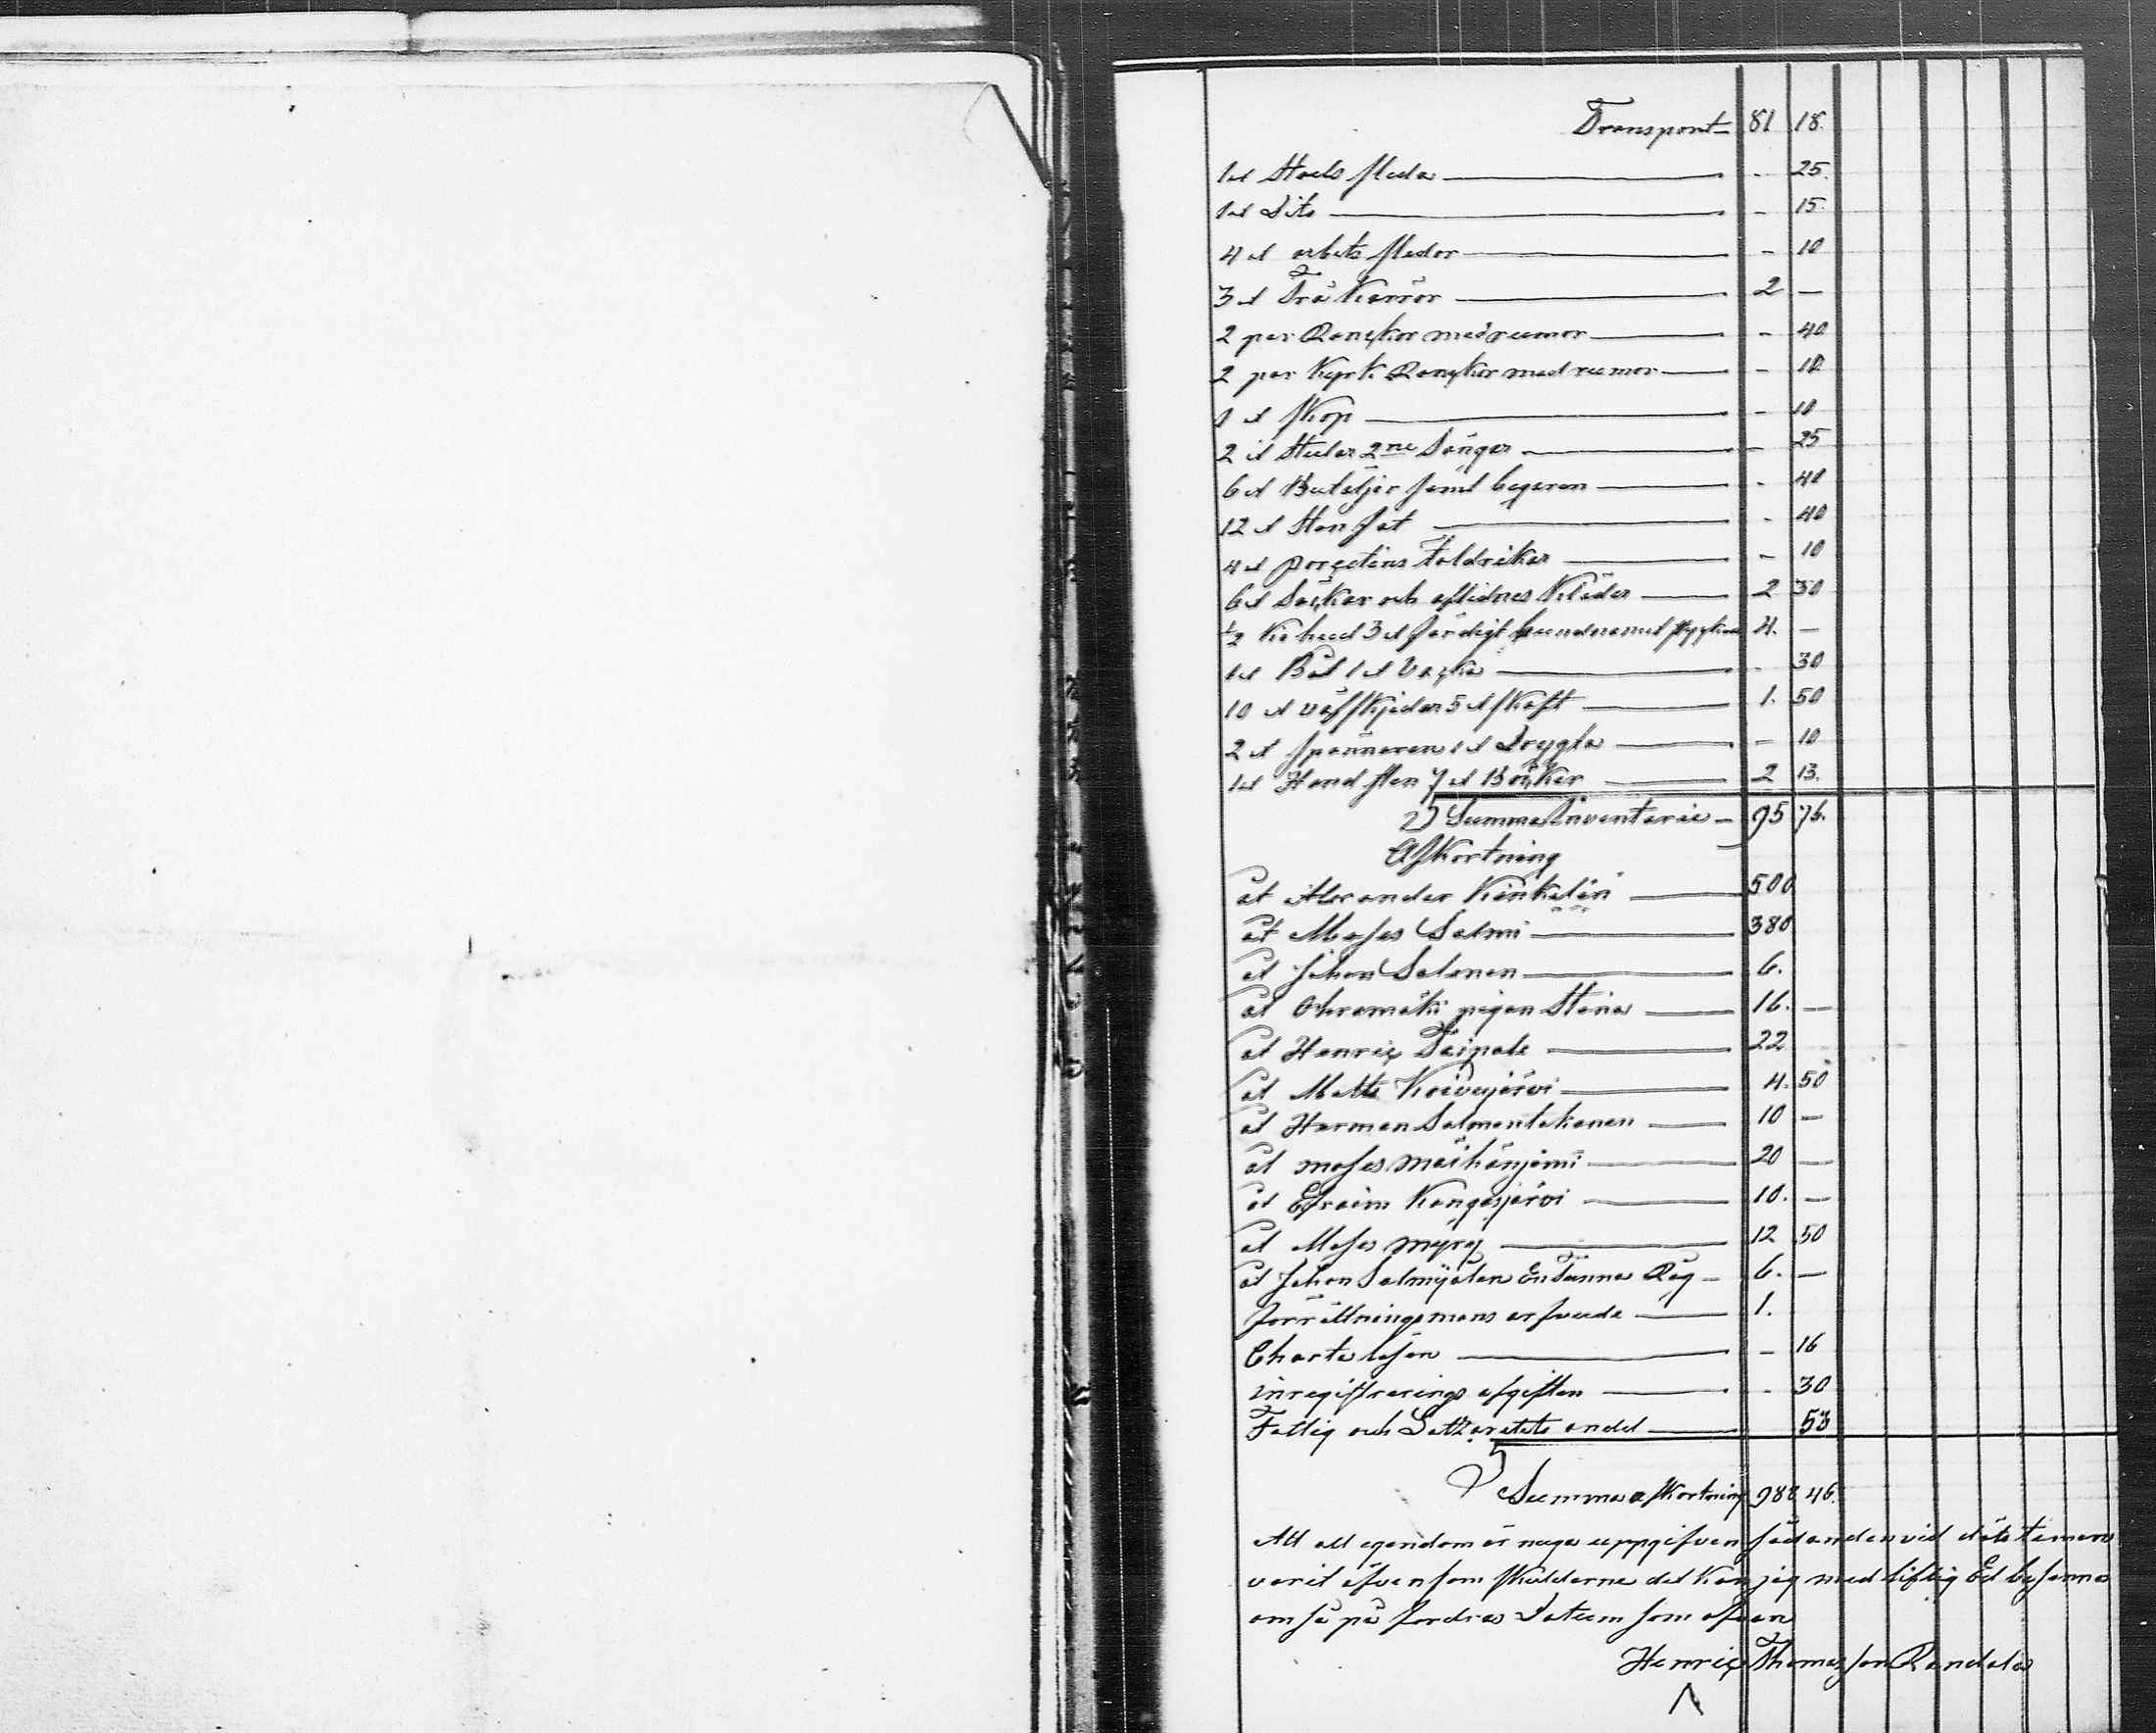 Transport 81 18.
1 st Stads släda - 25.
1 st Dito - 15.
4 st arbets slädor - 10
3 st Trä Kärror 2 -
2 par Ranckor med remmor - 40
2 par Kyrk Ranckor med remmor - 10
1 st skåp - 10
2 st Stolar 2ne Sängar - 25
6 st Buteljer samt bägaren - 40
12 st Sten fat - 40
4 st porcelins Taldrikar - 10
6 st Säckar och aflidnes Kläder 2 50
½ Ko hud 3 st färdigt 4. -
1 st Båt 1 st Vacka - 30
10 st väfskjedar 5 st skaft 1. 50
2 st spannaren 1 st Drygla - 10
1 st Hand sten 7 st Böcker 2 13.
Summa Inventarie 95 76.
Afkortning
at Alexander Kinkelin 500
at Moses Salmi 380
at Johan Salonen 6.
at Ahramäki pigan Stina 16. -
at Henric Taipale 22
at Matts Koivujärvi 4. 50
at Herman Salmentakanen 10 -
at Moses Mäihänjämi 20 -
at Efraim Kangasjärvi 10. -
at Moses Myry 12 50
at Johan Salmijalan En Tunna Råg 6. -
förrättningsmans arfvode 1.
Charta lösen - 16
inregistrerings afgiften - 30
Fattig och Lattzaretets andel 53
Summa afkortning 988 46.
Att all egendom är noga uppgifven sådan den vid döds timan
varit äfven som skulderna det kan jag med liflig Ed besanna
om så på fordras Datum som ofvan
Henric Thomasson Randala